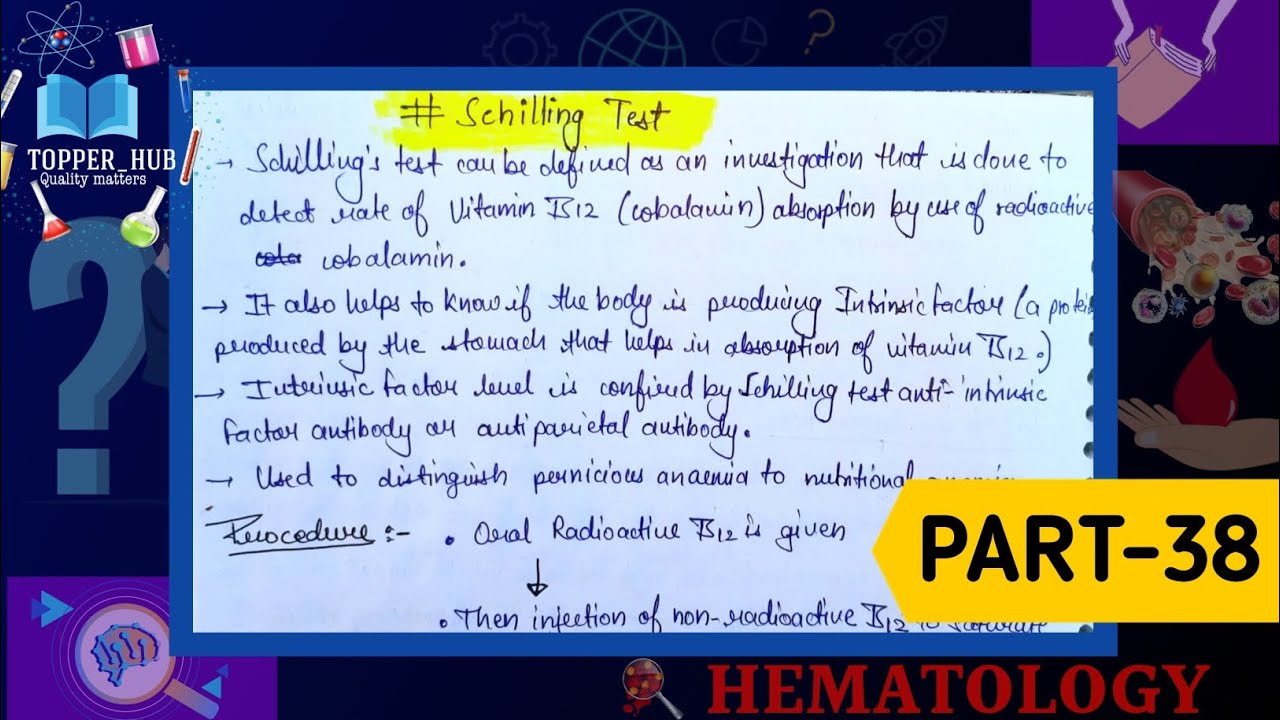 TOPPER_HUB
Quality matters
# Schilling Test
→ Schilling's test can be defined as an investigation that is done to
detect rate of Vitamin B12 (cobalamin) absorption by use of radioactive
cobalamin.
→ It also helps to know if the body is producing Intrinsic factor (a protein
produced by the stomach that helps in absorption of vitamin B12.)
→ Intrinsic factor level is confired by Schilling test anti-intrinsic
factor antibody or antiparietal antibody.
→ Used to distinguish pernicious anaemia to nutritional
Procedure :- • Oral Radioactive B12 is given
↓
• Then injection of non-radioactive B12 to saturate
PART-38
HEMATOLOGY